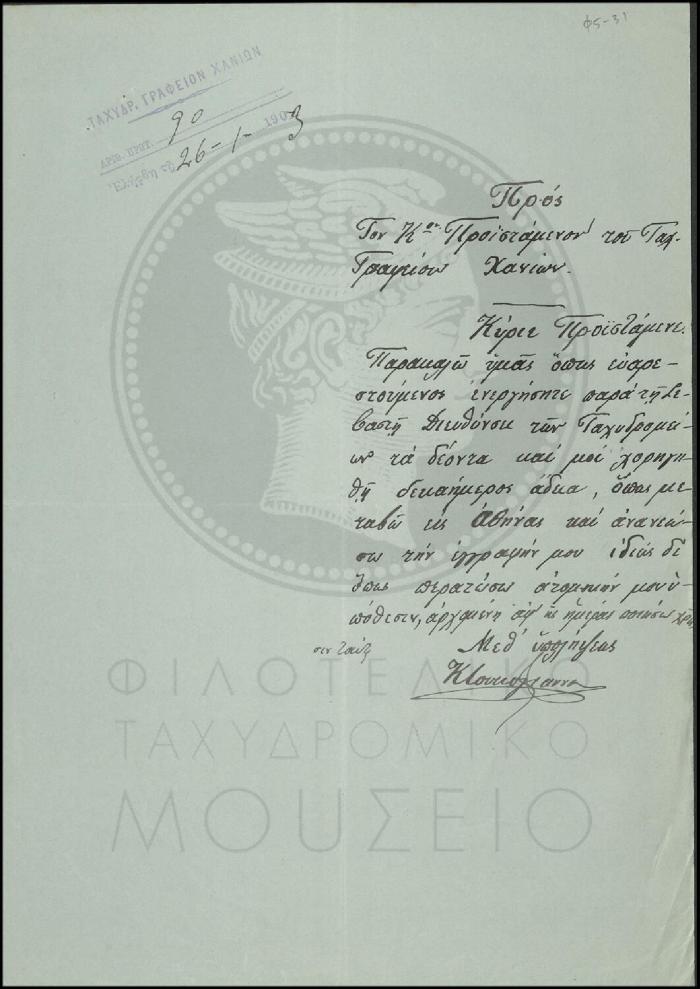 Φ5-31
ΤΑΧΥΔΡ. ΓΡΑΦΕΙΟΝ ΧΑΝΙΩΝ
ΑΡΙΘ. ΠΡΩΤ. 90
Ἐλήφθη τῇ 26-1-1903
Πρὸς
Τον Κον Προϊστάμενον του Ταχ.
Γραφείου Χανίων.
Κύριε Προϊστάμενε.
Παρακαλῶ ὑμᾶς ὅπως εὐαρε-
στούμενος ἐνεργήσητε παρὰ τῇ Σε-
βαστῇ Διευθύνσει τῶν Ταχυδρομεί-
ων τὰ δέοντα καὶ μοὶ χορηγη-
θῇ δεκαήμερος ἄδεια, ὅπως με-
ταβῶ εἰς Ἀθήνας καὶ ἀνανεώ-
σω τὴν ἐγγραφήν μου ἰδίως δὲ
ὅπως περατώσω ἀτομικήν μου ὑ-
πόθεσιν, ἀρχομένη ἀφ' ἧς ἡμέρας ποιήσω χρῆ
σιν ταύτης
Μεθ' ὑπολήψεως
ΦΙΛΟΤΕΛΙΚΟ
ΤΑΧΥΔΡΟΜΙΚΟ
ΜΟΥΣΕΙΟ